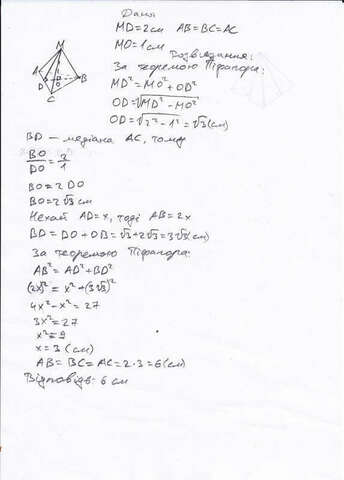 Дано
MD=2см AB=BC=AC
MO=1см
Розвязання:
За теоремою Піфагора:
MD²=MO²+OD²
OD=√MD²-MO²
OD=√2²-1²=√3(см)
BD – медіана AC, тому
BO/DO=2/1
BO=2DO
BO=2√3 см
Нехай AD=x, тоді AB=2x
BD=DO+OB=√3+2√3=3√3(см)
За теоремою Піфагора:
AB²=AD²+BD²
(2x)²=x²+(3√3)²
4x²-x²=27
3x²=27
x²=9
x=3(см)
AB=BC=AC=2·3=6(см)
Відповідь: 6 см
M
A
D
O
B
C